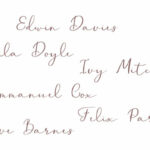 Edwin Davies
la Doyle
Ivy Mite
mmanuel Cox
Felix Par
ve Barnes